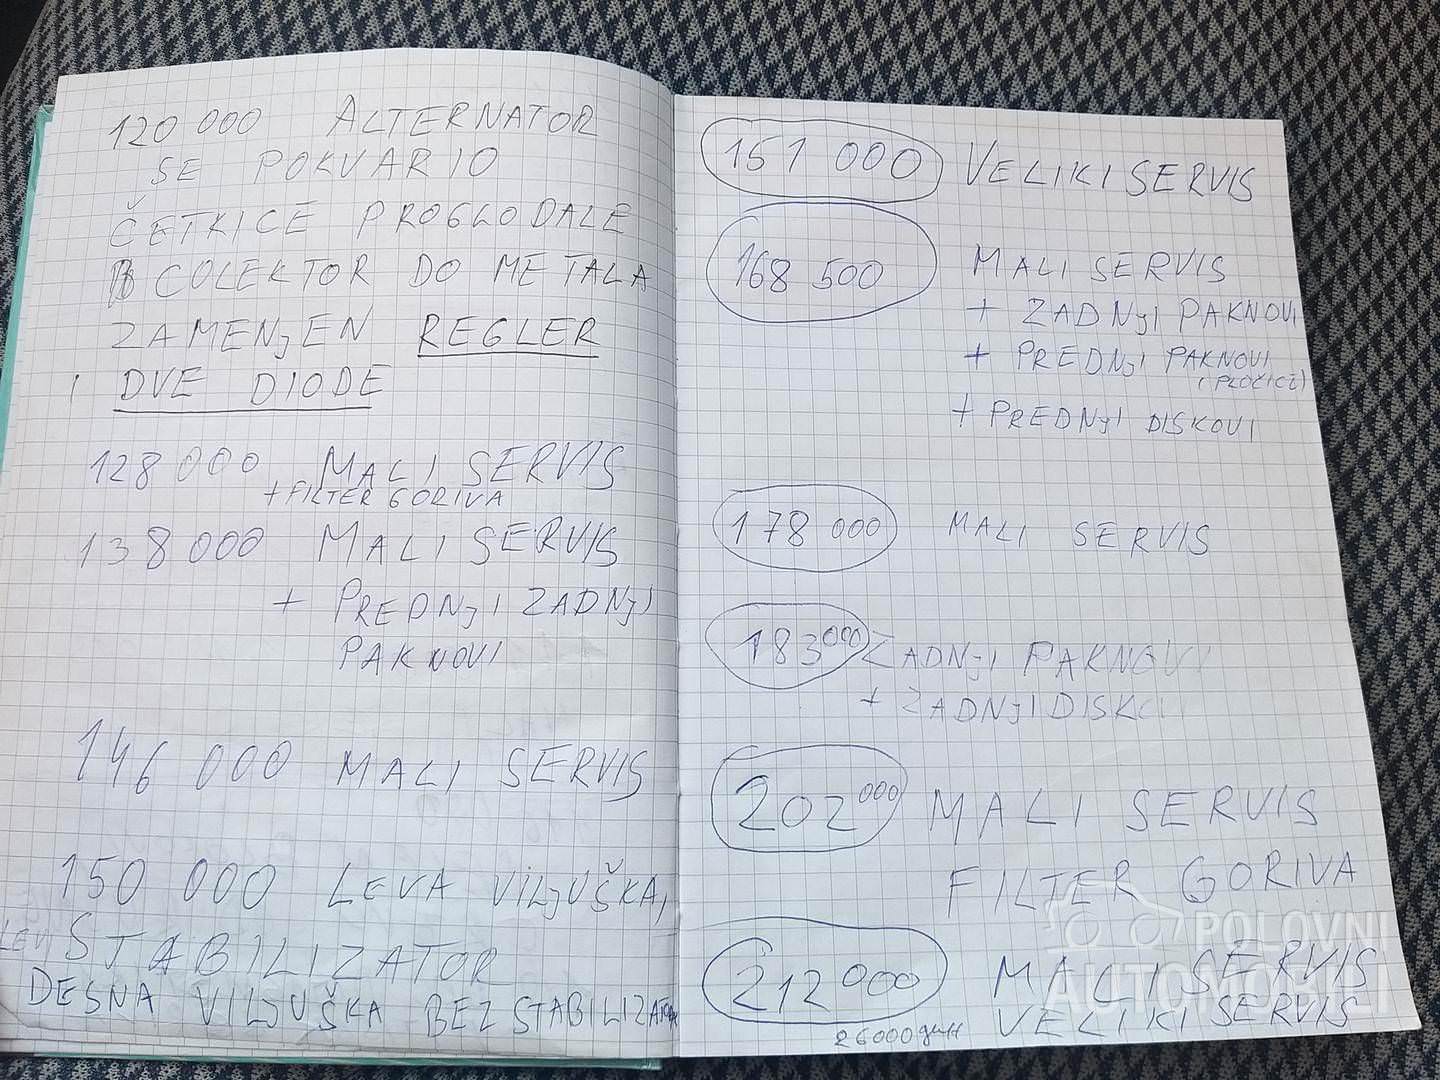 120 000 ALTERNATOR
SE POKVARIO
ČETKICE PROGLODALE
COLEKTOR DO METALA
ZAMENjEN REGLER
I DVE DIODE
128 000 MALI SERVIS
+ FILTER GORIVA
138 000 MALI SERVIS
+ PREDNjI ZADNjI
PAKNOVI
146 000 MALI SERVIS
150 000 LEVA VILjUŠKA,
LEVI STABILIZATOR
DESNA VILjUŠKA BEZ STABILIZATORA
151 000 VELIKI SERVIS
168 500 MALI SERVIS
+ ZADNjI PAKNOVI
+ PREDNjI PAKNOVI
(PLOČICE)
+ PREDNjI DISKOVI
178 000 MALI SERVIS
183 000 ZADNjI PAKNOVI
+ ZADNjI DISKOVI
202 000 MALI SERVIS
FILTER GORIVA
212 000 MALI SERVIS
VELIKI SERVIS
26000 дин
POLOVNI
AUTOMOBILI